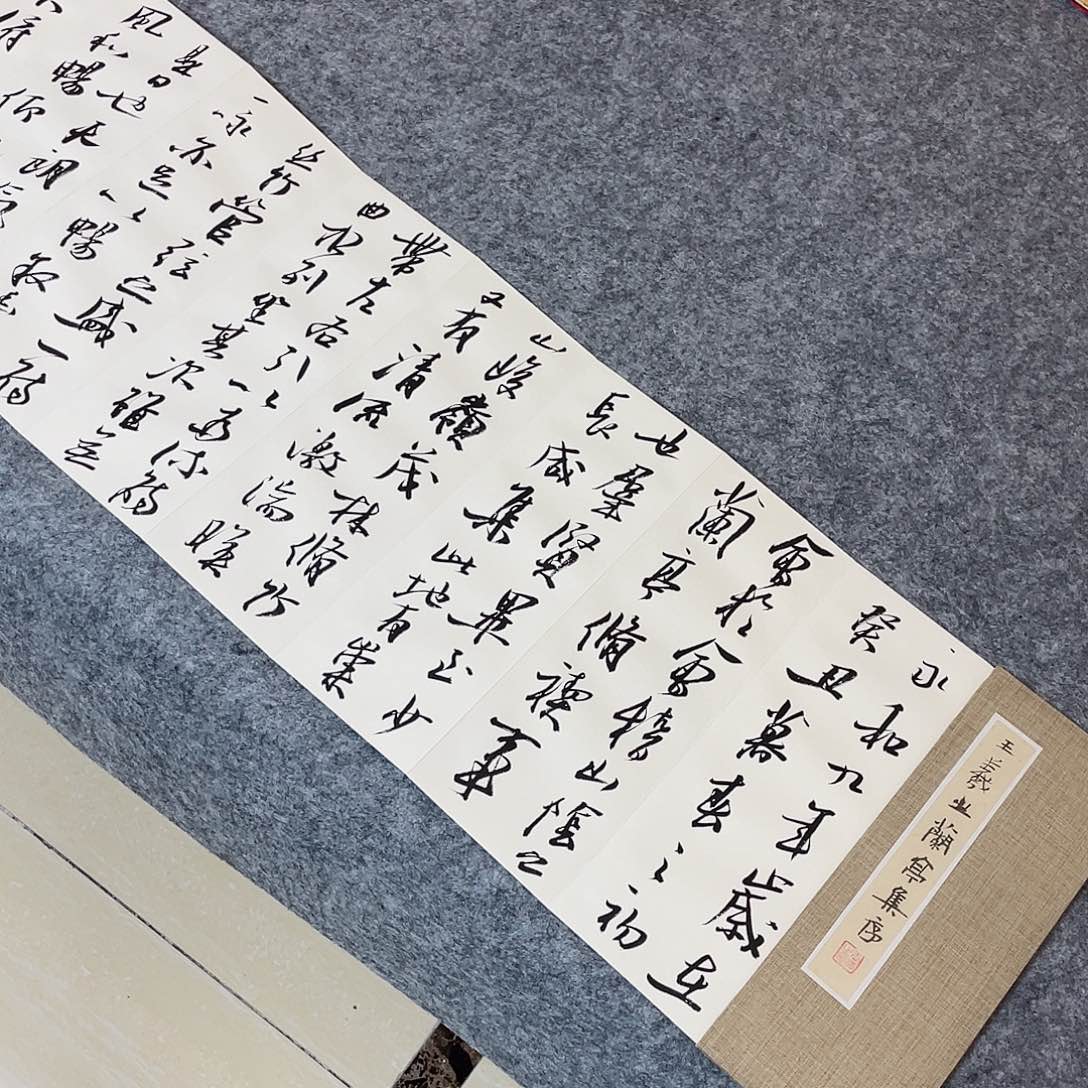 王羲之蘭亭集序
永和九年歲在
癸丑暮春之初
會於會稽山陰之
蘭亭脩禊事
也群賢畢至少
長咸集此地有崇
山峻嶺茂林脩竹
又有清流激湍暎
帶左右引以為流觴
曲水列坐其次雖無
絲竹管弦之盛一觴
一詠亦足以暢敘
是日也天朗氣
風和暢仰